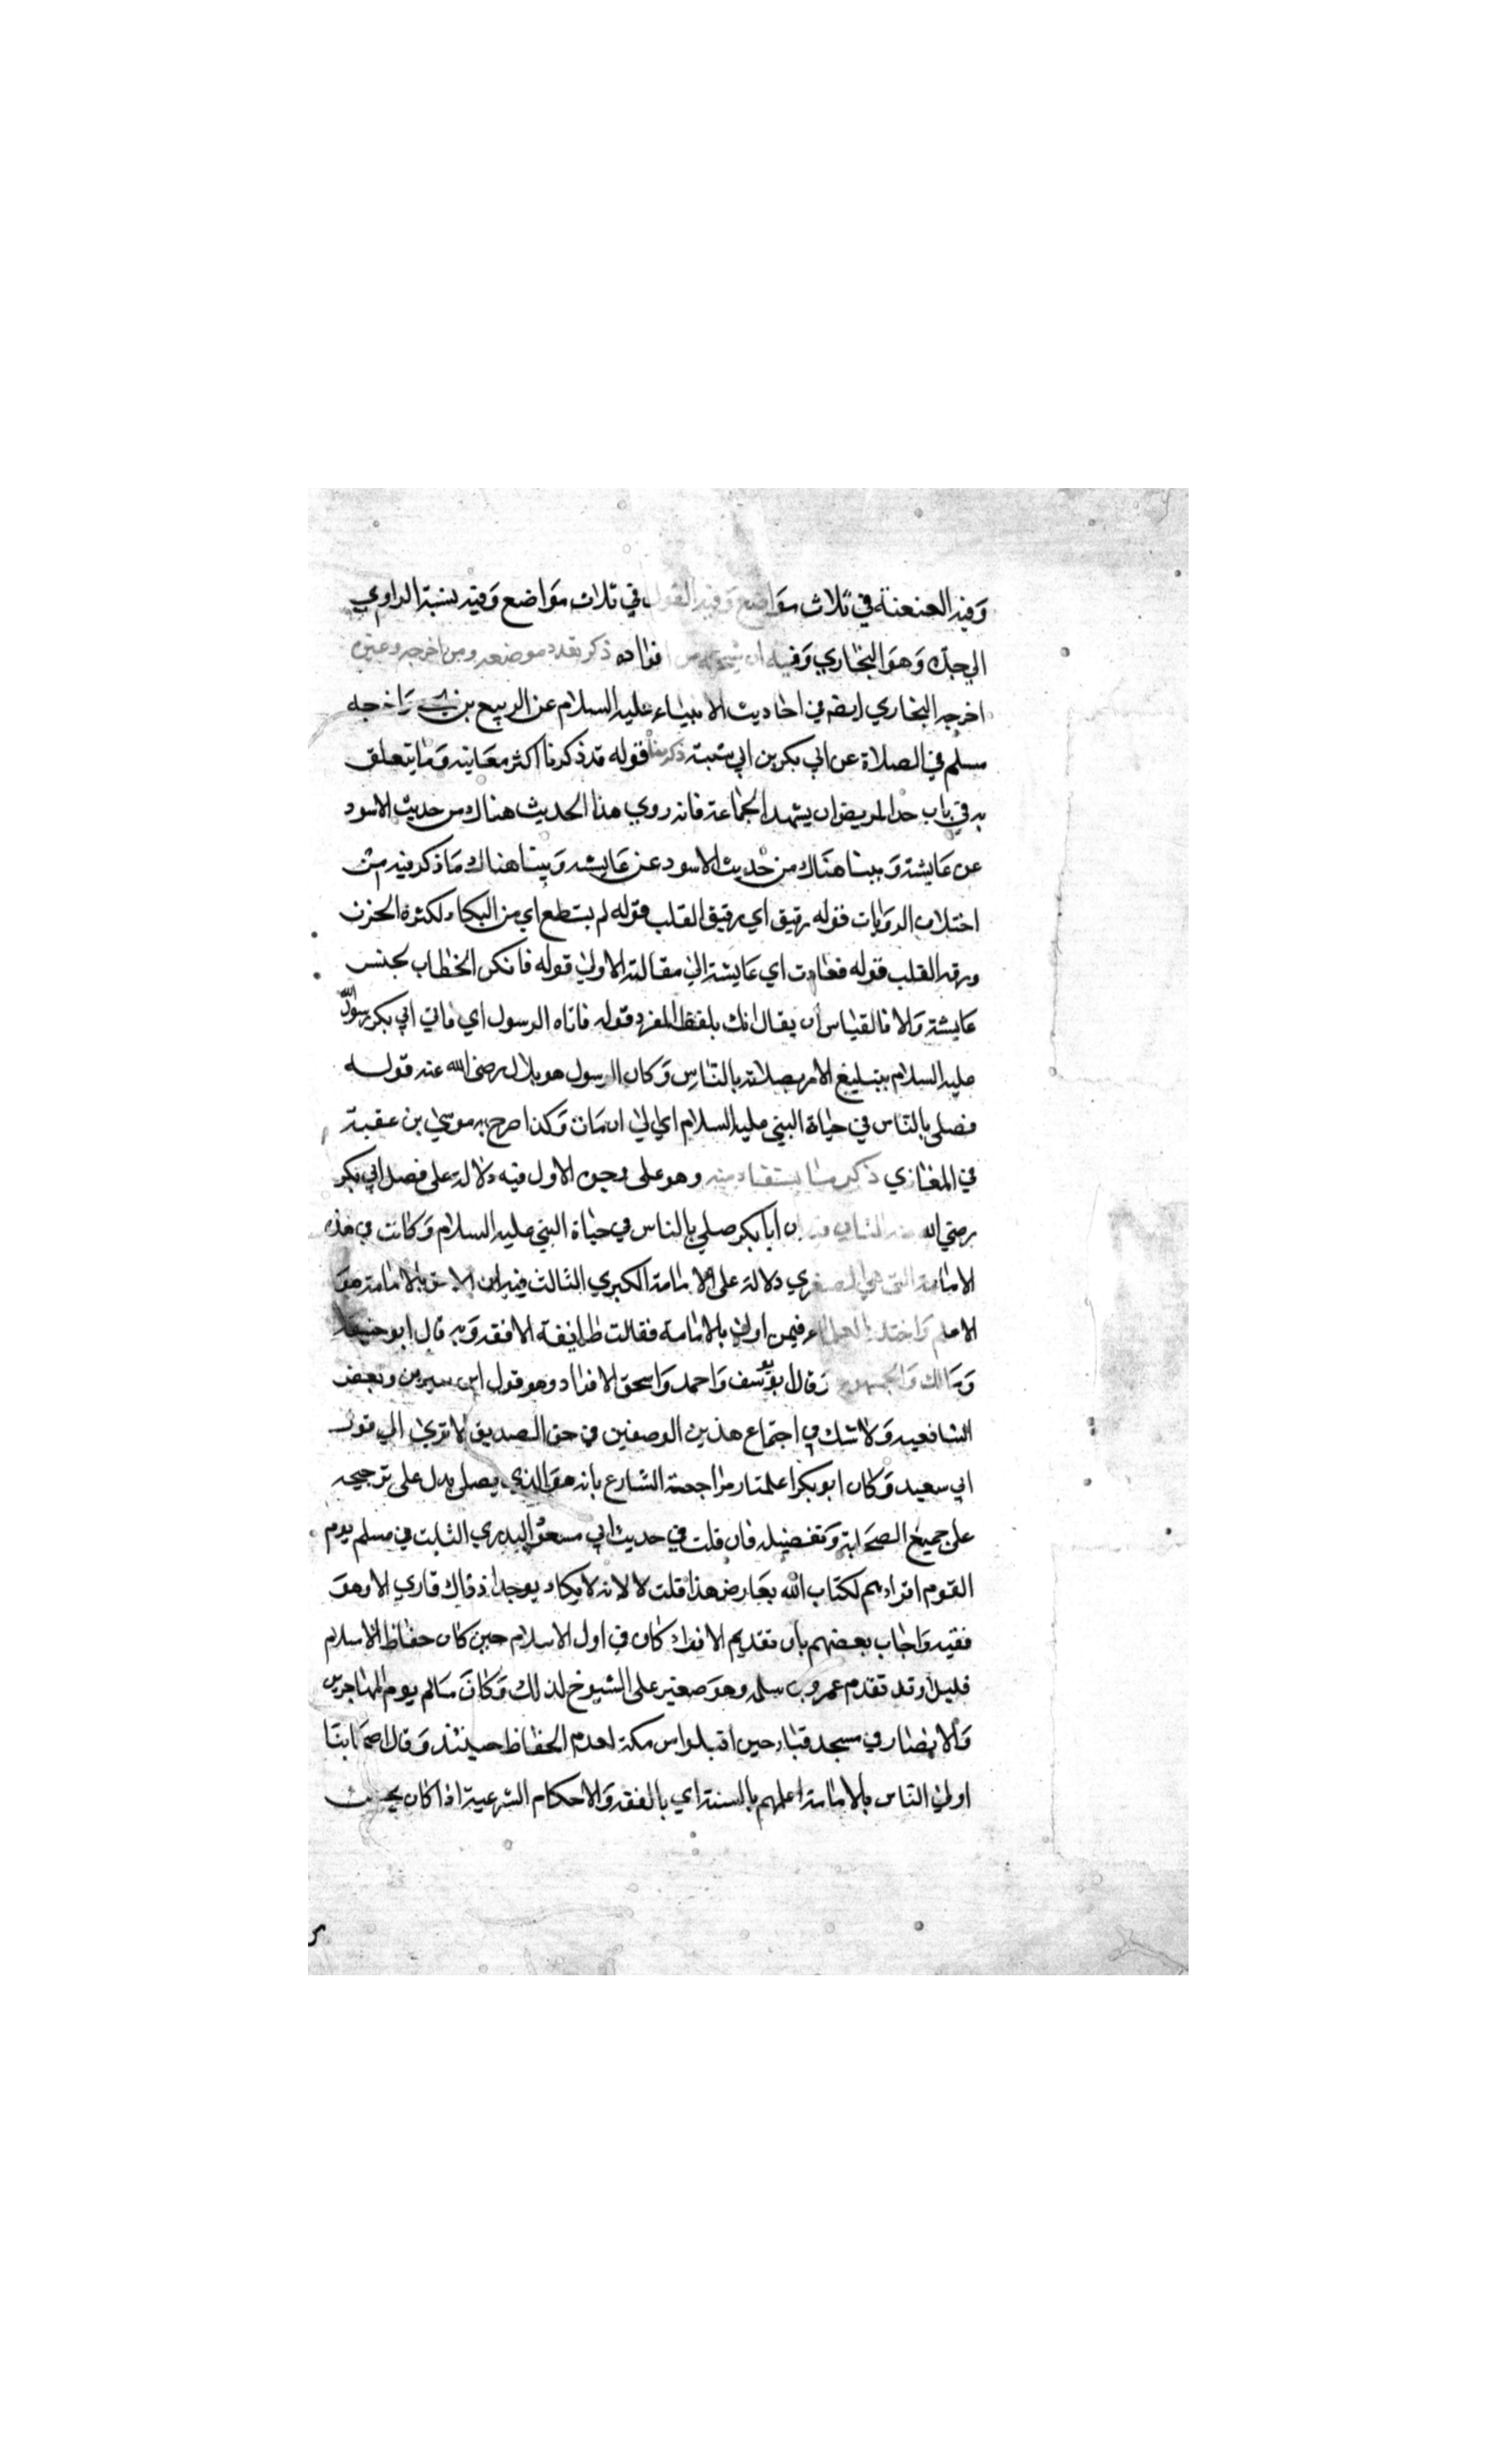 وفيه العنعنة في ثلاث مواضع وفيه القول في ثلاث مواضع وفيه نسبة الراوي
الي جده وهو البخاري وفيه ان شيخه من افراده ذكر تعدد موضعه ومن اخرجه وغيره
اخرجه البخاري ايضه في احاديث الانبياء عليه السلام عن الربيع بن واخرجه
مسلم في الصلاة عن ابي بكر بن ابي شيبة ذكر معناه قوله قد ذكرنا اكثر معانيه وما يتعلق
به في باب حد المريض ان يشهد الجماعة فانه روي هذا الحديث هناك من حديث الاسود
عن عايشة وبينا هناك من حديث الاسود عن عايشه وبينا هناك ما ذكر فيه من
اختلاف الروايات فقوله رقيق اي رقيق القلب قوله لم يستطع اي من البكاء لكثرة الحزن
ورقه القلب قوله فعادت اي عايشة الي مقالته الاولي قوله فانكن الخطاب لجنس
عايشة والا فالقياس ان يقال انك بلفظ المفرد قوله فاتاه الرسول اي فاتي ابي بكر رسول الله
عليه السلام بتبليغ الامر بصلاته بالناس وكان الرسول هو بلال رضي الله عنه قوله
فصلي بالناس في حياة النبي عليه السلام اي الي ان مات وكذا صرح به موسي بن عقبة
في المغازي ذكر ما يستفاد منه وهو على وجوه الاول فيه دلالة على فضل ابي بكر
رضي الله عنه الثاني فيه ان ابا بكر صلي بالناس في حياة النبي عليه السلام وكانت في هذه
الامامة التي هي الصغري دلالة على الامامة الكبري الثالث فيه ان الاحق بالامامة هو
الاعلم واختلف العلماء فيمن اولي بالامامة فقالت طايفة الافقه وبه قال ابو حنيفة
ومالك والجمهور وقال ابو يوسف واحمد واسحق الاقراء وهو قول ابن سيرين وبعض
الشافعيه ولا شك في اجتماع هذين الوصفين في حق الصديق الا تري الي قول
ابي سعيد وكان ابو بكر اعلمنا ومراجعة الشارع بانه هو الذي يصلي يدل على ترجيحه
على جميع الصحابة وتفضيله فان قلت في حديث ابي مسعود البدري الثابت في مسلم يوم
القوم اقراءهم لكتاب الله يعارض هذا قلت لا لانه لا يكاد يوجد اذ ذاك قاري الا وهو
فقيه واجاب بعضهم بان تقديم الاقراء كان في اول الاسلام حين كان حفاظ الاسلام
قليلا وقد تقدم عمرو بن سلمه وهو صغير على الشيوخ لذلك وكان سالم يوم المهاجرين
والانصار في مسجد قباء حين اقبلوا من مكة لعدم الحفاظ حينئذ وقال اصحابنا
اولي الناس بالامامة اعلمهم بالسنة اي بالفقه والاحكام الشرعية اذا كان يحسن